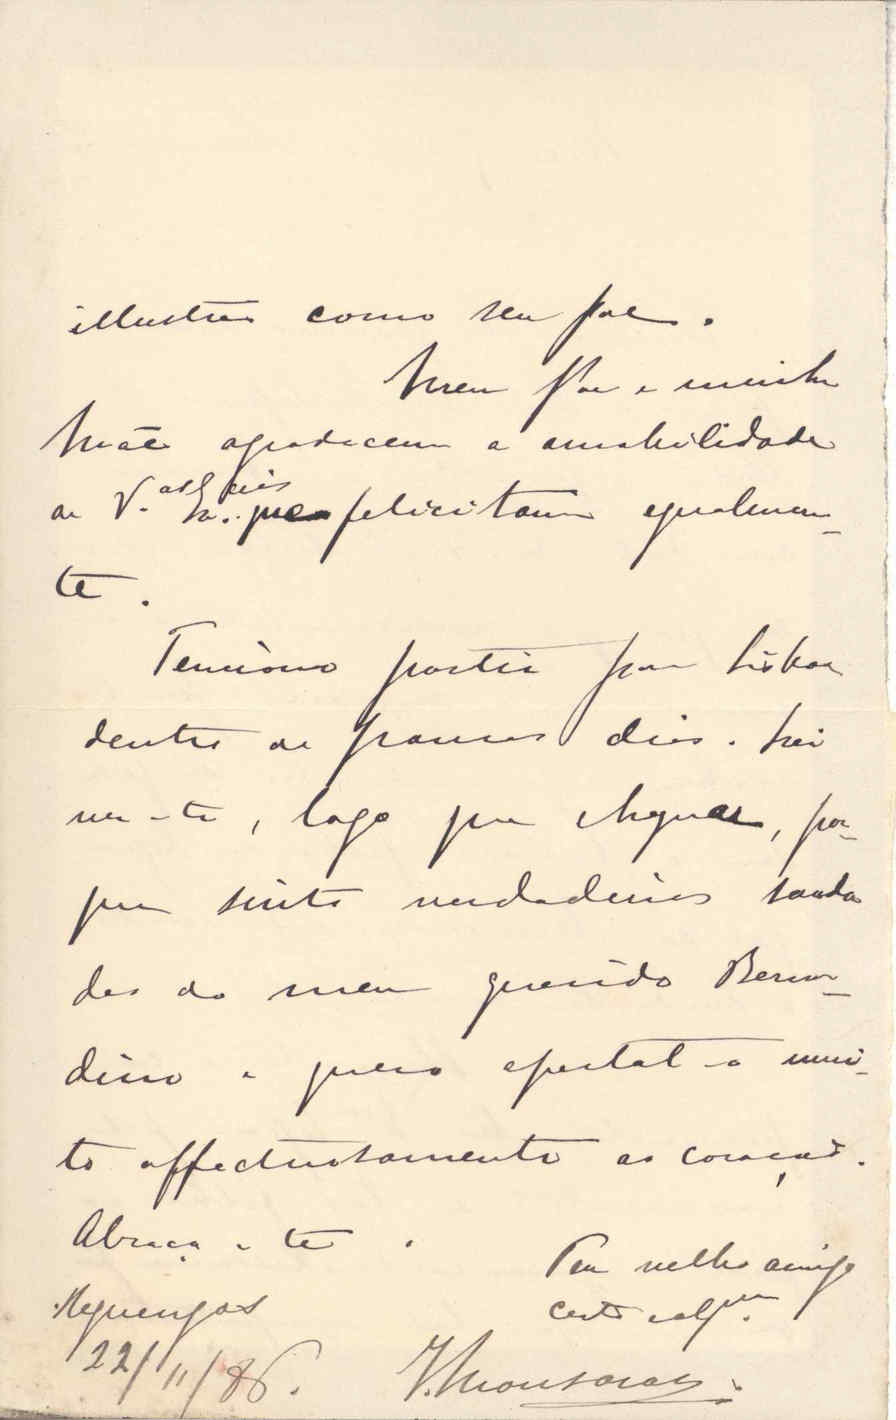 illustre como seu pae.
Meu Pae e minha
Mãe agradecem a amabilidade
de V.as Ex.cias que felicitam egualmen-
te.
Tenciono partir para Lisboa
dentro de poucos dias. Irei
ver-te, logo que chegar, por-
que sinto verdadeiras sauda
des do meu querido Bernar-
dino e quero apertal-o mui-
to affectuosamente ao coração.
Abraça-te.
Teu velho amigo
certo e
Reguengos
22/11/86.
Monsaraz.